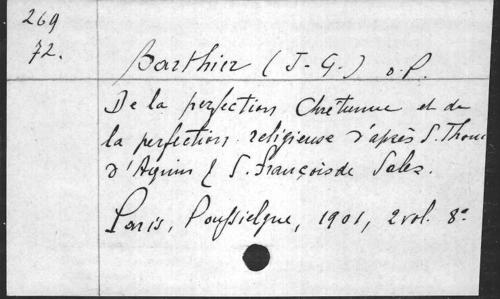 269
72.
Barthier (J-G.) o.P.
De la perfection Chrétienne et de
la perfection religieuse d'après S. Thomas
d'Aquin & S. François de Sales.
Paris, Poussielgue, 1901, 2 vol. 8°